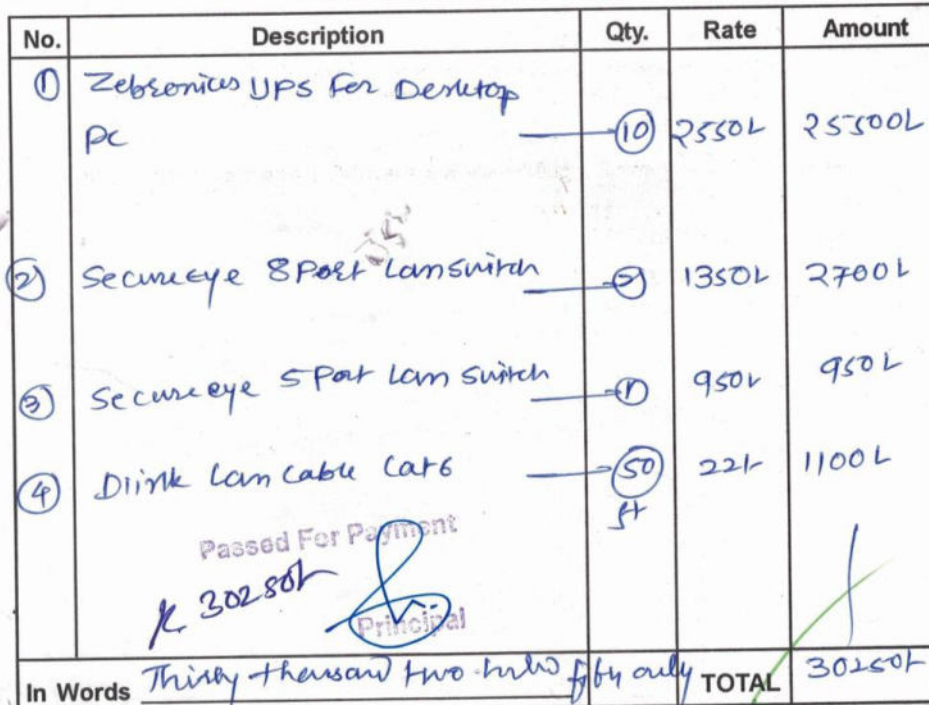 No. Description Qty. Rate Amount
① Zebronics UPS for Desktop
PC ⑩ 2550/- 25500/-
② Secureeye 8 Port Lan Switch ② 1350/- 2700/-
③ Secureeye 5 Port Lan Switch ① 950/- 950/-
④ Dlink Lan Cable Cat6 50 22/- 1100/-
ft
Passed For Payment
30250/-
Principal
In Words Thirty thousand two fifty only TOTAL 30250/-